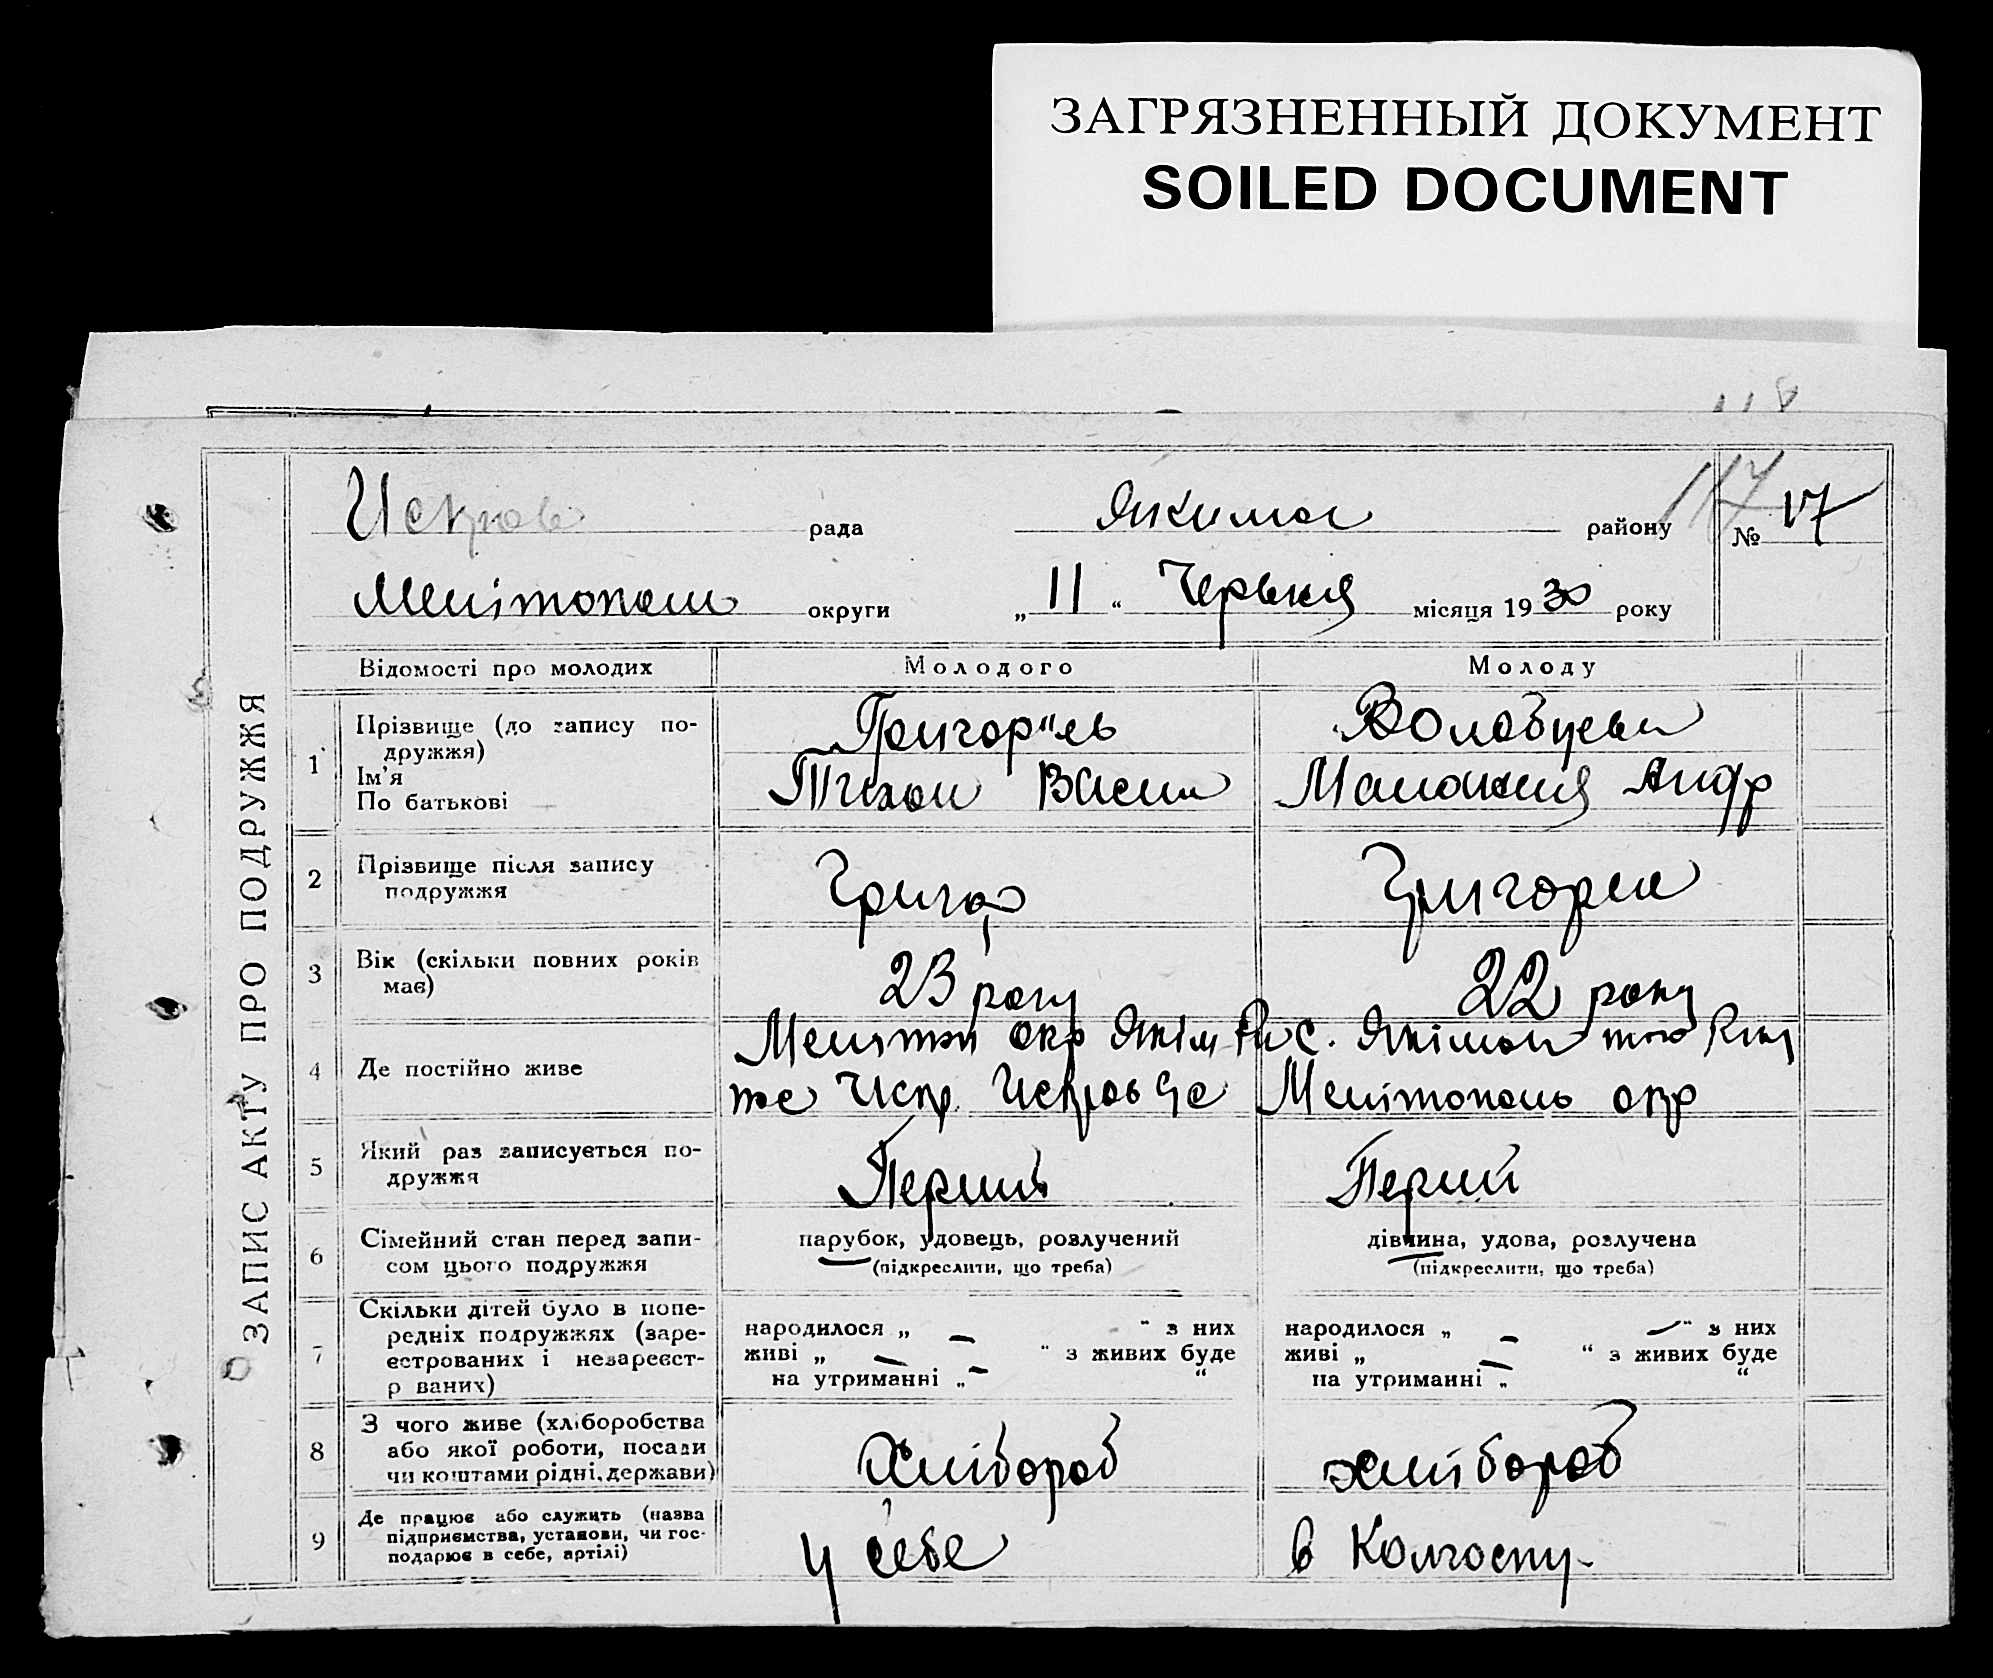 ЗАГРЯЗНЕННЫЙ ДОКУМЕНТ
SOILED DOCUMENT
118
ЗАПИС АКТУ ПРО ПОДРУЖЖЯ
рада Якимов району 117 № 17
Мелітополь округи „ 11 “ Червня місяця 1930 року
Відомості про молодих Молодого Молоду
1 Прізвище (до запису по-
дружжя)
Ім'я
По батькові
Григор"єв
Тихон Васил
Маланія Андр
2 Прізвище після запису
подружжя
Григор
Григорєв
3 Вік (скільки повних років
має)
23 року
22 року
4 Де постійно живе
Меліттоп окр Якім
с. Якімов
Мелітополь окр
5 Який раз записується по-
дружжя
Перший
Перий
6 Сімейний стан перед запи-
сом цього подружжя
парубок, удовець, розлучений
(підкреслити, що треба)
дівчина, удова, розлучена
(підкреслити, що треба)
7 Скільки дітей було в попе-
редніх подружжях (заре-
єстрованих і незареєст-
р ваних)
народилося „ — “ з них
живі „ — “ з живих буде
на утриманні „ — “
народилося „ — “ з них
живі „ — “ з живих буде
на утриманні „ — “
8 З чого живе (хліборобства
або якої роботи, посади
чи коштами рідні, держави)
Хлібороб
хлібороб
9 Де працює або служить (назва
підприємства, установи, чи гос-
подарює в себе, артілі)
у себе
в Колгоспу